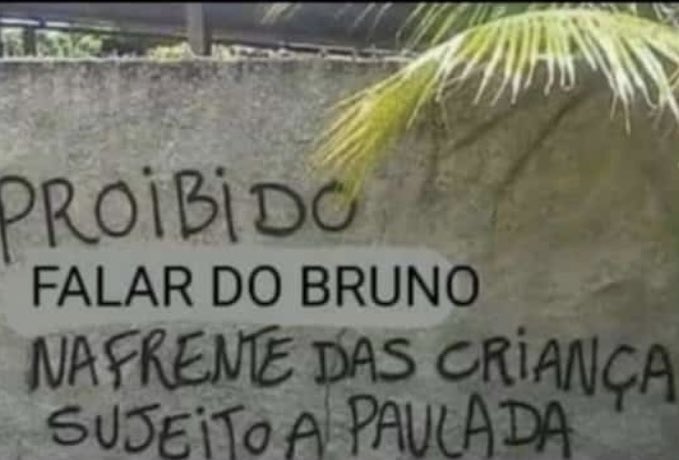 PROIBIDO
FALAR DO BRUNO
NA FRENTE DAS CRIANÇA
SUJEITO A PAULADA